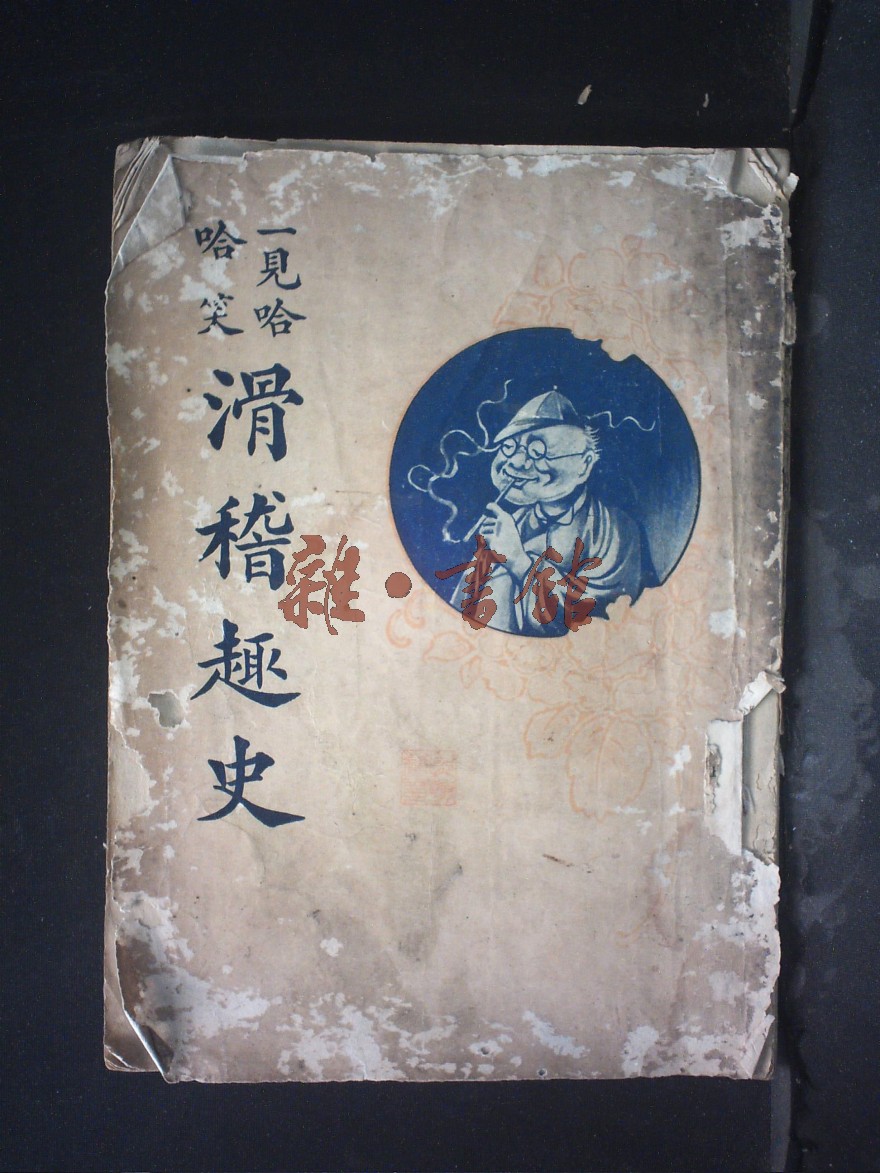 一見哈
哈笑
滑稽趣史
雜·書館